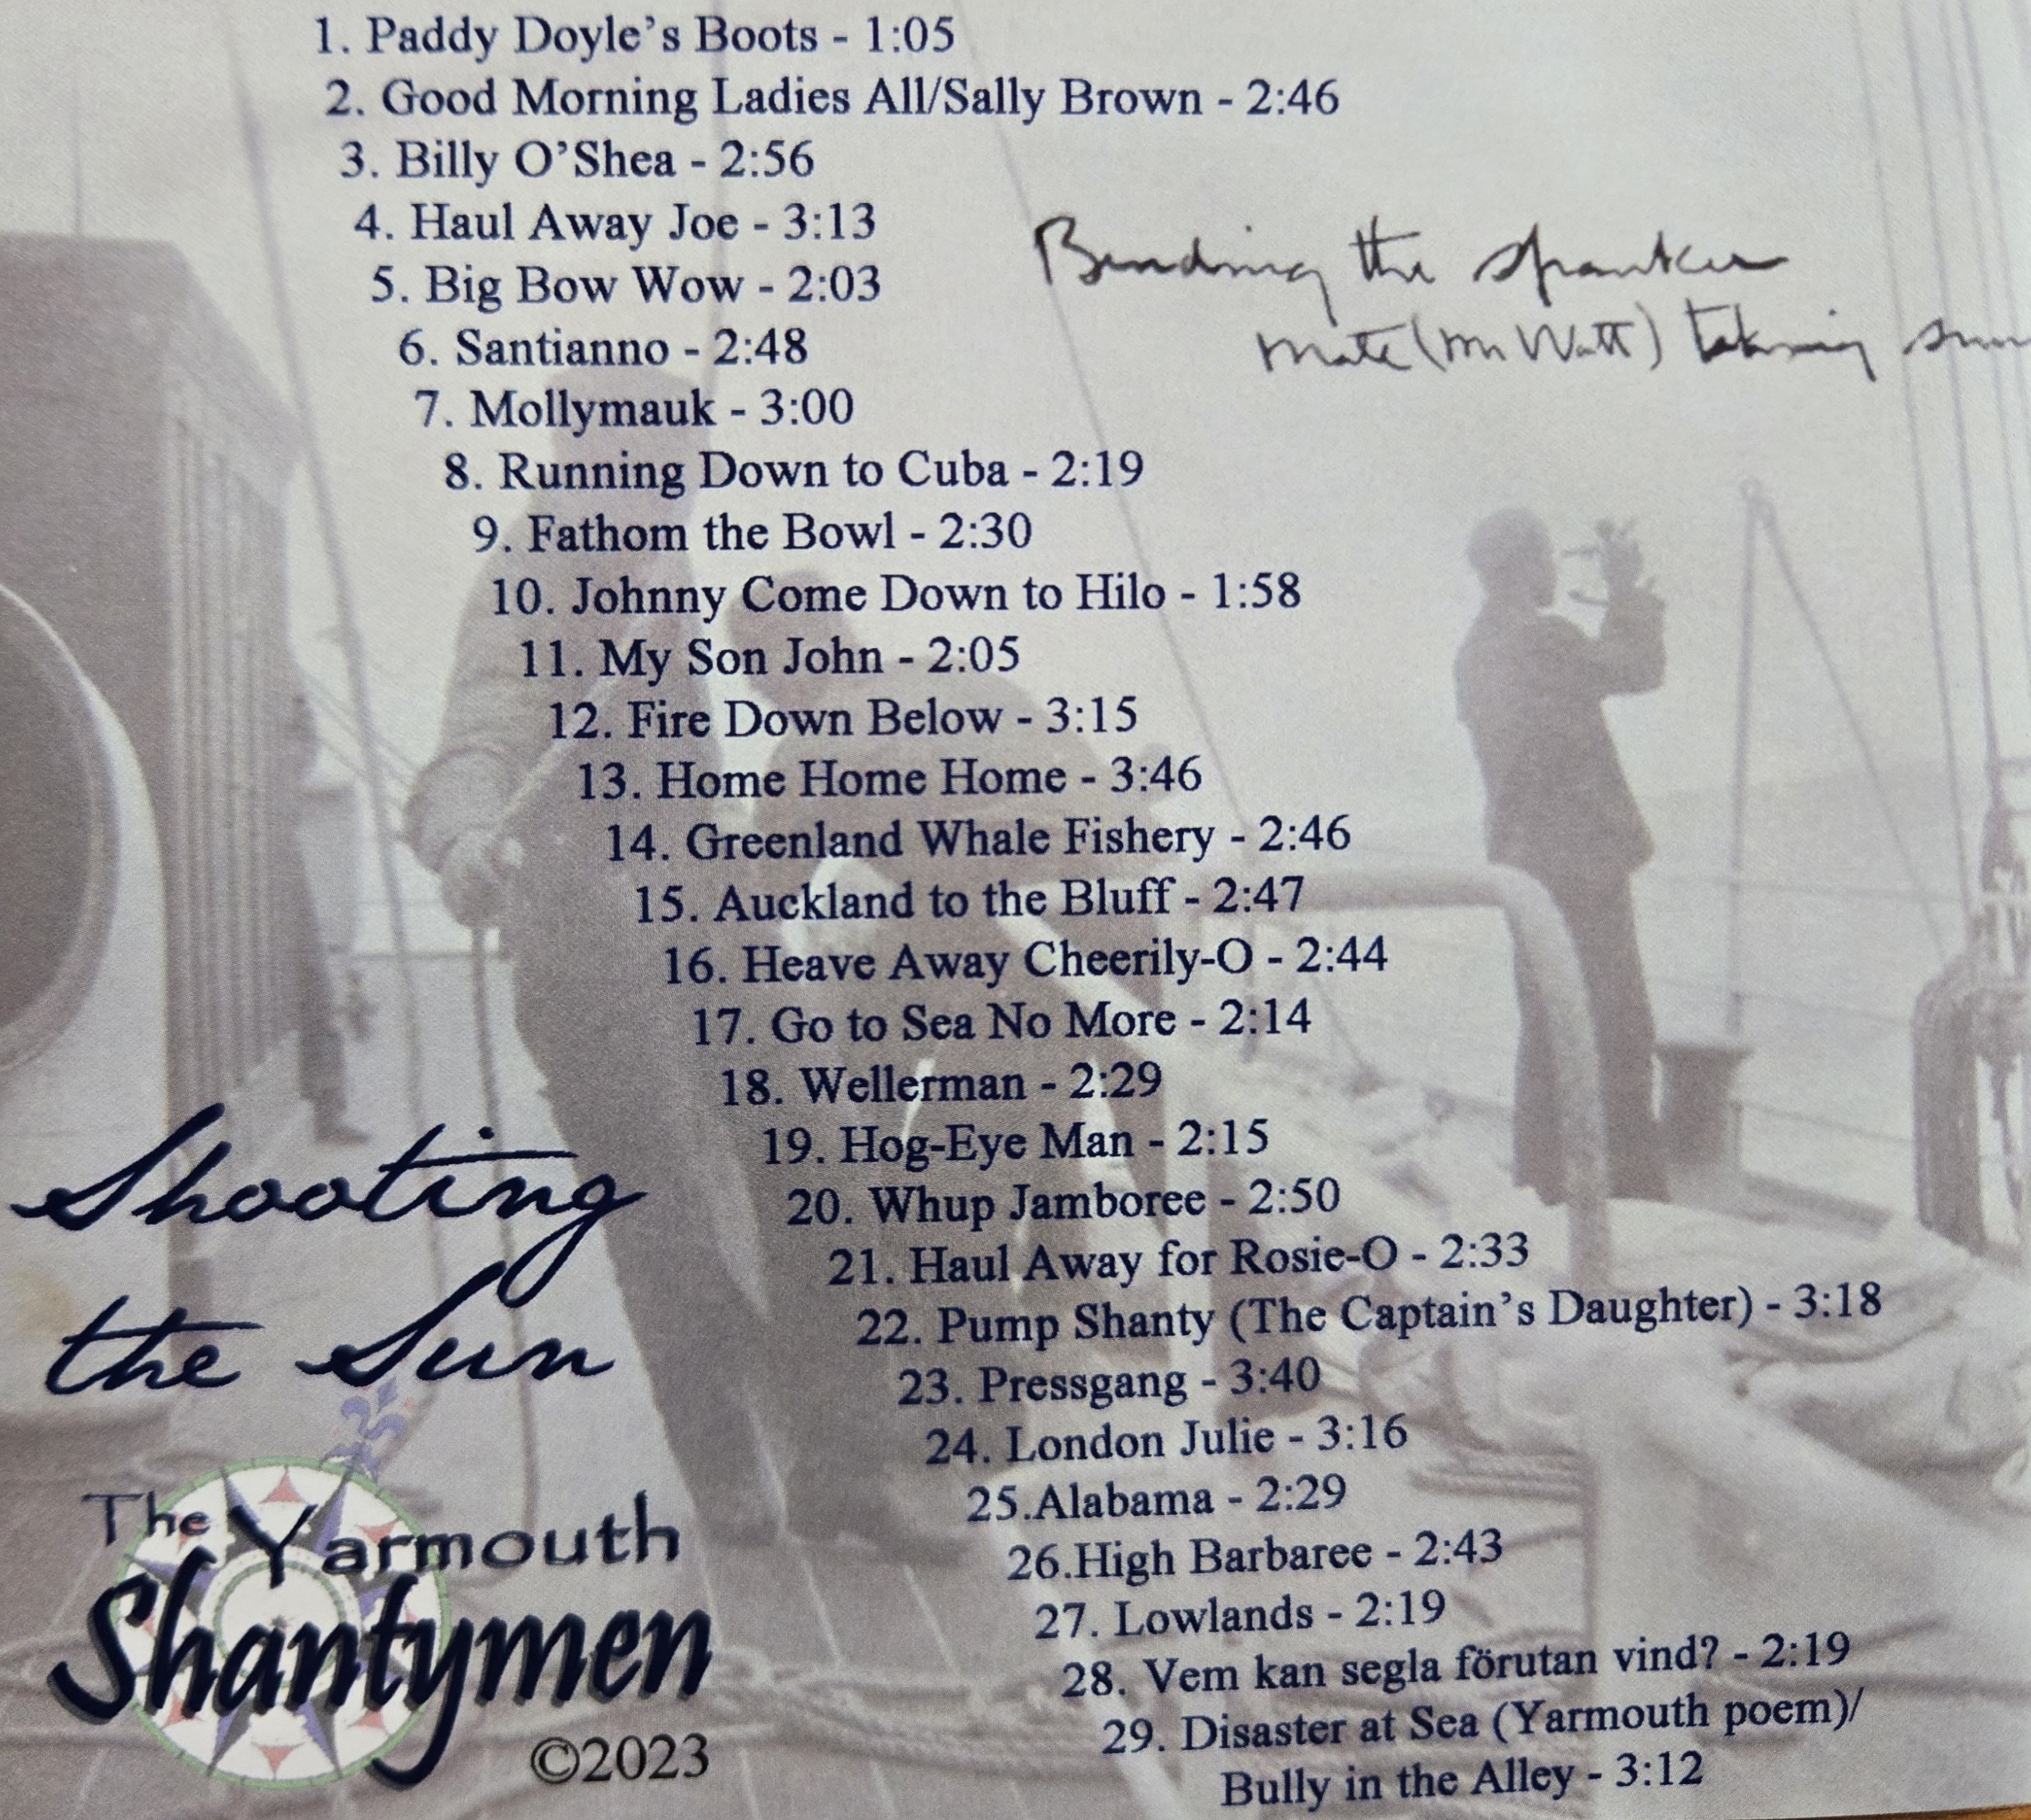 1. Paddy Doyle's Boots - 1:05
2. Good Morning Ladies All/Sally Brown - 2:46
3. Billy O'Shea - 2:56
4. Haul Away Joe - 3:13
5. Big Bow Wow - 2:03
6. Santianno - 2:48
7. Mollymauk - 3:00
8. Running Down to Cuba - 2:19
9. Fathom the Bowl - 2:30
10. Johnny Come Down to Hilo - 1:58
11. My Son John - 2:05
12. Fire Down Below - 3:15
13. Home Home Home - 3:46
14. Greenland Whale Fishery - 2:46
15. Auckland to the Bluff - 2:47
16. Heave Away Cheerily-O - 2:44
17. Go to Sea No More - 2:14
18. Wellerman - 2:29
19. Hog-Eye Man - 2:15
20. Whup Jamboree - 2:50
21. Haul Away for Rosie-O - 2:33
22. Pump Shanty (The Captain's Daughter) - 3:18
23. Pressgang - 3:40
24. London Julie - 3:16
25.Alabama - 2:29
26.High Barbaree - 2:43
27. Lowlands - 2:19
28. Vem kan segla förutan vind? - 2:19
29. Disaster at Sea (Yarmouth poem)/
Bully in the Alley - 3:12
Bending the spanker
mate (Mr Watt) taking sun
Shooting
the Sun
The Yarmouth
Shantymen
©2023